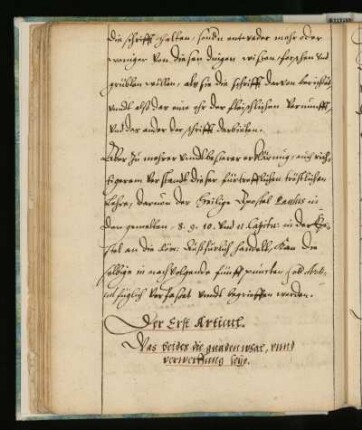 die schrifft halten, sondn entweder mehr oder
weniger von diesen dingen wissen, forschen vnd
grüblen wöllen, als sie die schrifft davon berichtet
vnndt also der eine ohr der fleischlichen Vernunfft,
vnd das ander der schrifft darbieten.
Aber zu mehrer vnndt besserer erklärung, auch rich-
tigerem verstandt dieser fürtrefflichen tröstlichen
Lehre, darvon der Heilige Apostel Paulus in
dem gemelten 8. 9. 10. vnd 11. Capitu: in der Epi-
stel an die Röm: außfürlich handelt, Kan die
selbige in nachvolgende fünff puncten
füglich verfasset vnndt begriffen werden.
Der Erst Articul.
Was beides die gnaden wahl, vnnd
verwerffung seye.